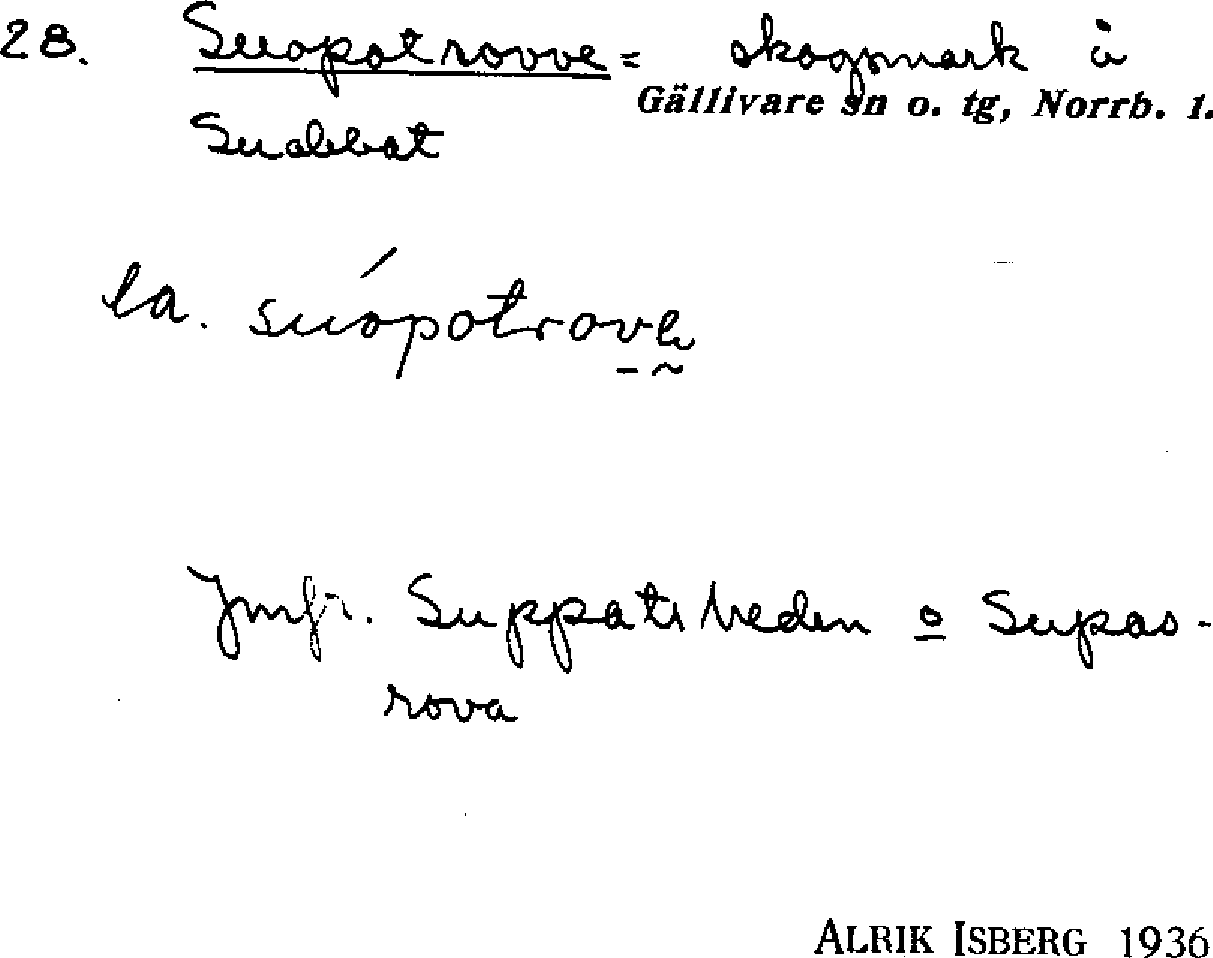 28. Suopotrovve = skogsmark å
Gällivare sn o. tg, Norrb. l.
Suobbat
la. suópotrove
Jmfr. Suppatiheden o Supas-
rova
ALRIK ISBERG 1936